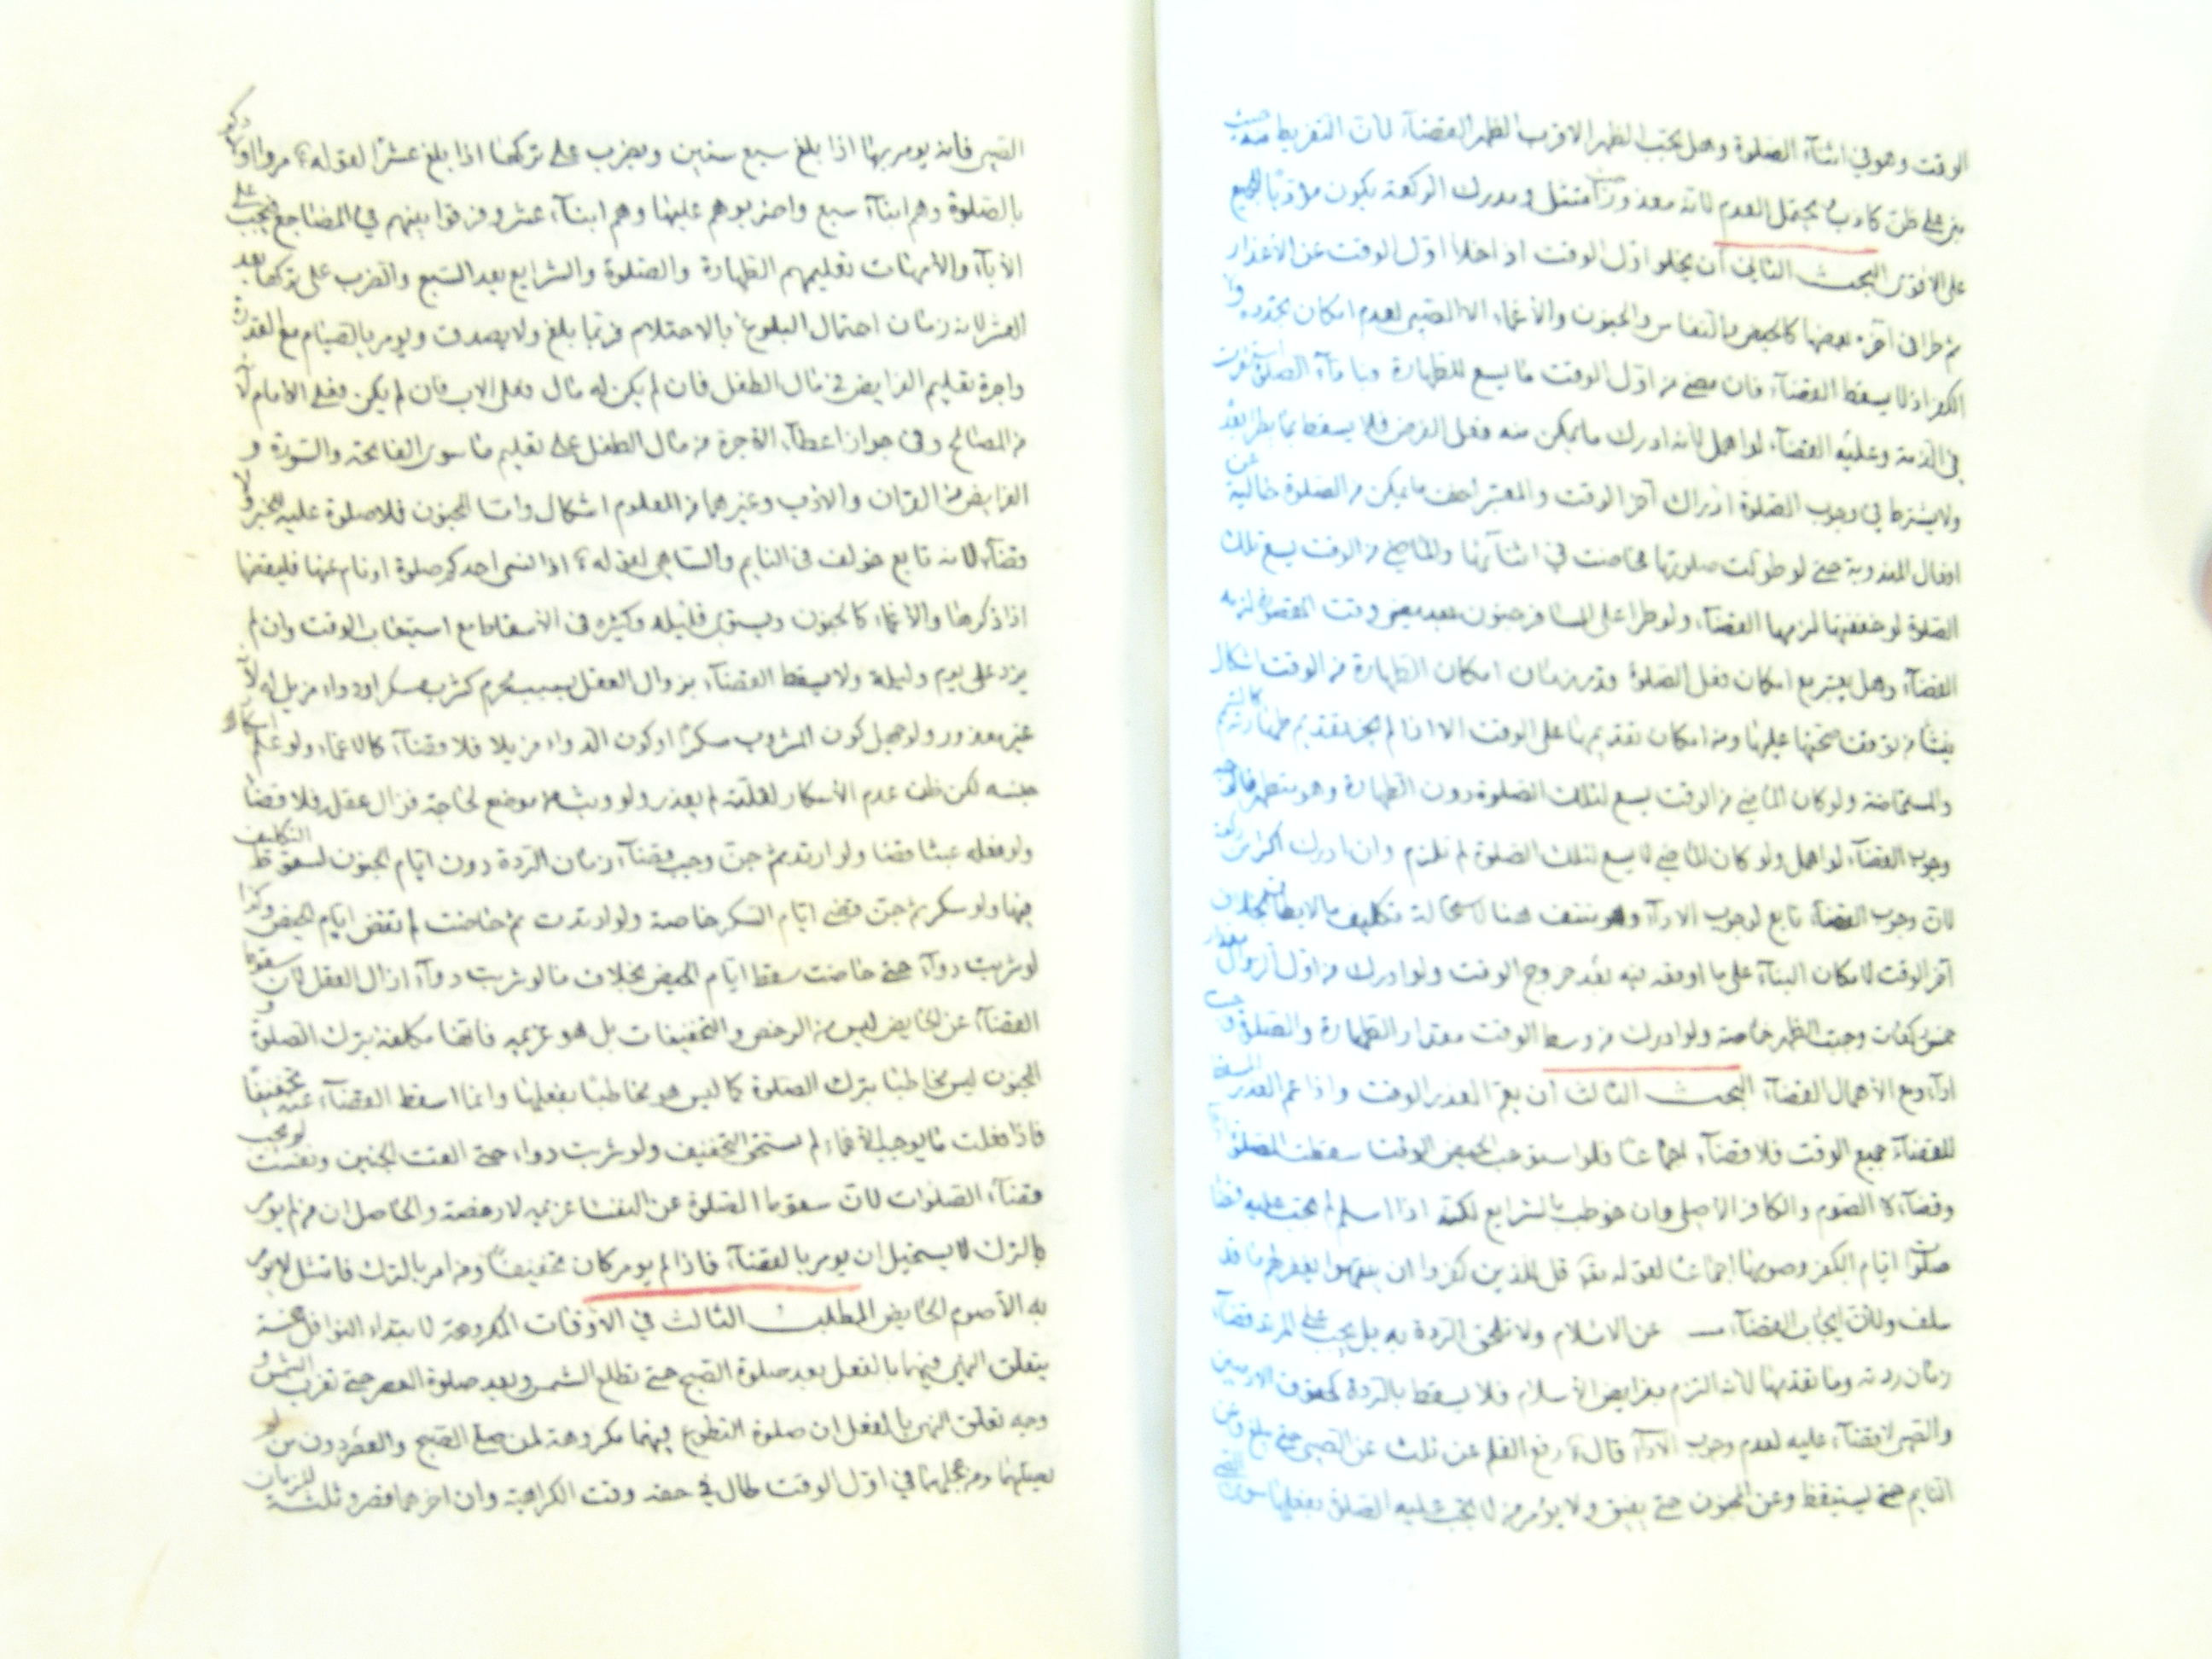 الوقت وهو في اثناء الصلوة وهل يجب الظهر الاقرب الظهر القضاء لان التفريط منه حيث
بنى على ظن كاذب ويحتمل العدم لانه معذور ممتثل ومدرك الركعة يكون مؤديا للجميع
على الاقوى البحث الثاني ان يخلو اول الوقت اذا خلا اول الوقت عن الأعذار
ثم طرا في آخره بعضها كالحيض والنفاس والجنون والأغماء لا الصبى لعدم امكان تجدده ولا
الكفر اذ لا يسقط القضاء فان مضى من اول الوقت ما يسع للطهارة وباداء الصلوة استقرت
في الذمة وعليه القضاء لو اهمل لانه ادرك ما يمكن منه فعل الفرض فلا يسقط بما يطرا بعد
ولا يشترط في وجوب الصلوة ادراك آخر الوقت والمعتبر اخف ما يمكن من الصلوة خالية عن
افعال المندوبة حتى لو طولت صلوتها فحاضت في اثنائها والماضي من الوقت يسع تلك
الصلوة لو خففتها لزمها القضاء ولو طرا على المسافر جنون بعد مضي وقت المقصورة لزمه
القضاء وهل يعتبر مع امكان فعل الصلوة وقدر زمان امكان الطهارة من الوقت اشكال
ينشا من توقف صحتها عليها ومن امكان تقديمها على الوقت الا اذا لم يجز تقديم طهارته كالتيمم
والمستحاضة ولو كان الماضي من الوقت يسع لتلك الصلوة دون الطهارة وهو متطهر فالوجه
وجوب القضاء لو اهمل ولو كان الماضي لا يسع لتلك الصلوة لم تلزم وان ادرك اكثر من ركعة
لان وجوب القضاء تابع لوجوب الاداء وهو منتف هنا لاستحالة تكليف ما لا يطاق بخلاف
آخر الوقت لامكان البناء على ما اوقعه فيه بعد خروج الوقت ولو ادرك من اول الزوال مقدار
خمس ركعات وجبت الظهر خاصة ولو ادرك من وسط الوقت مقدار الطهارة والصلوة وجب
اداء ومع الأهمال القضاء البحث الثالث ان يعم العذر الوقت واذا عم العذر المسقط
للقضاء جميع الوقت فلا قضاء اجماعا فلو استوعب الحيض الوقت سقطت الصلوة
وقضاء لا الصوم والكافر الاصلي وان خوطب بالشرايع لكنه اذا اسلم لم يجب عليه قضاء
صلوات ايام الكفر وصومها اجماعا لقوله تعالى قل للذين كفروا ان ينتهوا يغفر لهم ما قد
سلف ولان ايجاب القضاء عن الاسلام ولا تلحق الردة به بل يجب على المرتد قضاء
زمان ردته وما تقدمها لانه التزم بفرايض الأسلام فلا يسقط بالردة كحقوق الادميين
والصبى لا قضاء عليه لعدم وجوب الاداء قال ع رفع القلم عن ثلث عن الصبى حتى بلغ وعن
النايم حتى يستيقظ وعن المجنون حتى يفيق ولا يؤمر من لا يجب عليه الصلوة بفعلها سوى
الصبى فانه يومر بها اذا بلغ سبع سنين ويضرب على تركها اذا بلغ عشرا لقوله ع مروا اولادكم
بالصلوة وهم ابناء سبع واضربوهم عليها وهم ابناء عشر وفرقوا بينهم في المضاجع فيجب على
الأباء والأمهات تعليمهم الطهارة والصلوة والشرايع بعد السبع والضرب على تركها بعد
العشر لانه زمان احتمال البلوغ بالاحتلام فربما بلغ ولا يصدق ويومر بالصيام مع القدرة
واجرة تعليم الفرايض في مال الطفل فان لم يكن له مال فعلى الاب فان لم يكن فعلى الامام لانه
من المصالح وفي جواز اعطاء الأجرة من مال الطفل على تعليم ما سوى الفاتحة والسورة و
الفرايض من القران والادب وغيرهما من العلوم اشكال واما المجنون فلا صلوة عليه للخبر ولا
قضاء لانه تابع خولف في النايم والساهي لقوله ع اذا نسى احدكم صلوة او نام عنها فليقضها
اذا ذكرها والأغماء كالجنون ويستوى قليله وكثيره في الأسقاط مع استيعاب الوقت وان لم
يزد على يوم وليلة ولا يسقط القضاء بزوال العقل بسبب محرم كشرب مسكر او دواء مزيل له لانه
غير معذور ولو جهل كون المشروب مسكرا او كون الدواء مزيلا فلا قضاء كالاغماء ولو علم اسكار
جنسه لكن ظن عدم الأسكار لقلته لم يعذر ولو وثب من موضع لحاجة فزال عقله فلا قضاء
ولو فعله عبثا قضا ولو ارتد ثم جن وجب قضاء زمان الردة دون ايام الجنون لسقوط التكليف
فيها ولو سكر ثم جن قضى ايام السكر خاصة ولو ارتدت ثم حاضت لم تقض ايام الحيض وكذا
لو شربت دواء حتى حاضت سقط ايام الحيض بخلاف ما لو شربت دواء ازال العقل لان سقوط
القضاء عن الحايض ليس من الرخص والتخفيفات بل هو عزيمة فانها مكلفة بترك الصلوة و
المجنون ليس مخاطبا بترك الصلوة كما ليس هو مخاطبا بفعلها وانما اسقط القضاء عنه تخفيفا
فاذا فعلت ما يوجب الأغماء لم يستحق التخفيف ولو شربت دواء حتى القت الجنين ونفست لم يجب
قضاء الصلوات لان سقوط الصلوة عن النفساء عزيمة لا رخصة والحاصل ان من لم يومر
بالترك لا يستحيل ان يومر بالقضاء فاذا لم يومر كان تخفيفا ومن امر بالترك فامتثل لا يومر
به الا صوم الحايض المطلب الثالث في الاوقات المكروهة لابتداء النوافل خمسة
يتعلق النهي فيهما بالفعل بعد صلوة الصبح حتى تطلع الشمس وبعد صلوة العصر حتى تغرب الشمس و
وجه تعلق النهى بالفعل ان صلوة التطوع فيهما مكروهة لمن صلى الصبح والعصر دون من لم
يصلهما ومن عجلهما في اول الوقت طال في حقه وقت الكراهية وان اخرهما قصر وثلثة للزمان